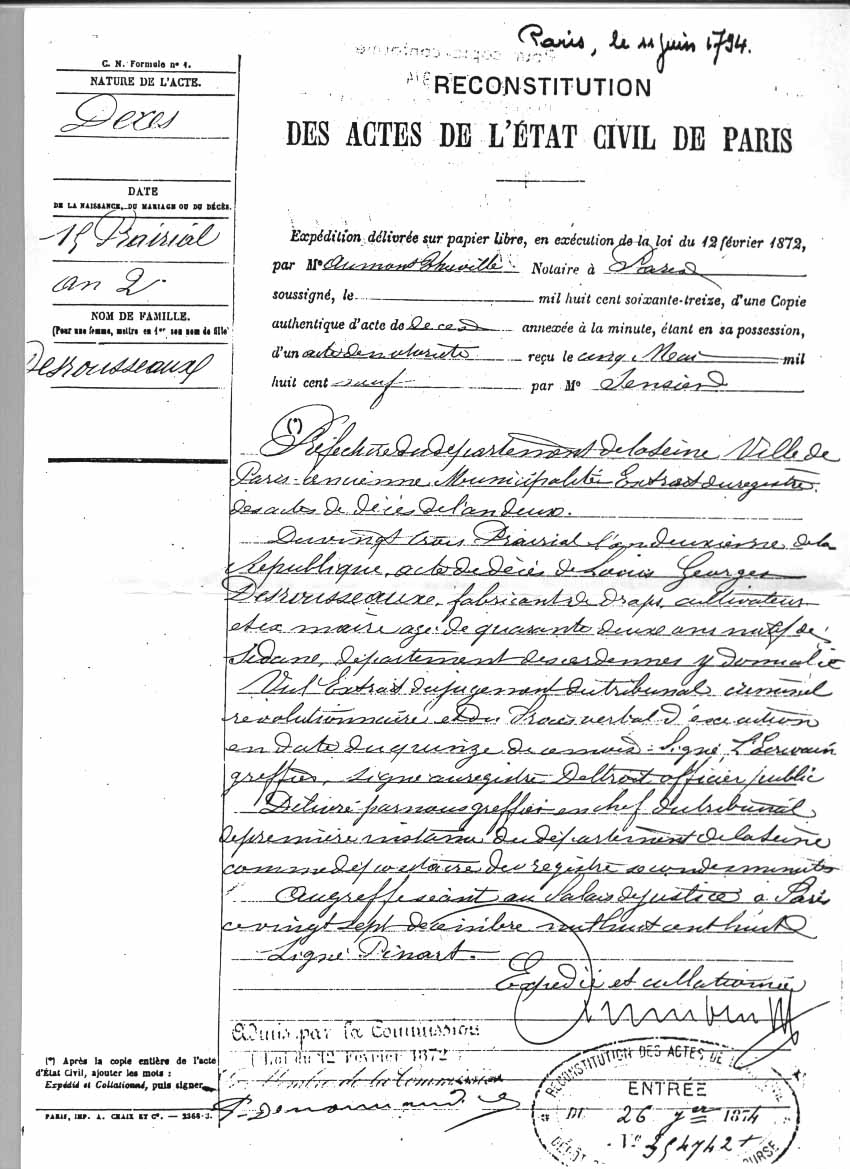 Paris, le 11 Juin 1794.
Pour copie conforme
C. N. Formule n° 1.
NATURE DE L'ACTE.
Décès
DATE
DE LA NAISSANCE, DU MARIAGE OU DU DÉCÈS.
15 Prairial
an 2.
NOM DE FAMILLE.
(Pour une femme, mettre en 1er son nom de fille)
Desrousseaux
RECONSTITUTION
DES ACTES DE L'ÉTAT CIVIL DE PARIS
Expédition délivrée sur papier libre, en exécution de la loi du 12 février 1872,
par Me Aumont Thiéville Notaire à Paris
soussigné, le mil huit cent soixante-treize, d'une Copie
authentique d'acte de décès annexée à la minute, étant en sa possession,
d'un acte de notoriété reçu le cinq Mai mil
huit cent neuf par Me
(*)
Préfecture du département de la Seine, Ville de
Paris ancienne Municipalité Extrait du registre
des actes de décès de l'an deux.
Du vingt trois Prairial l'an deuxième de la
République, acte de décès de Louis Georges
Desrousseaux, fabricant de draps, cultivateur
et ex maire agé de quarante deux ans natif de
Sédane, département des ardennes y domicilié
Vu l'Extrait du jugement du tribunal criminel
révolutionnaire et du Procès verbal d'éxécution
en date du quinze de ce mois. Signé
greffier, signé au registre Deltroit officier public
Délivré par nous greffier en chef du tribunal
de première instance du département de la Seine
comme dépositaire des registres secondes minutes
Au greffe séant au Palais de justice à Paris
ce vingt sept décembre mil huit cent huit
Signé Pinart.
Expédié et collationné
Admis par la Commission
(Loi du 12 Février 1872)
Le Membre de la Commission
(*) Après la copie entière de l'acte
d'État Civil, ajouter les mots :
Expédié et Collationné, puis signer
PARIS, IMP. A. CHAIX ET Cie. — 2368-3.
RECONSTITUTION DES ACTES DE
ENTRÉE
DU 26 1874
N° 354742